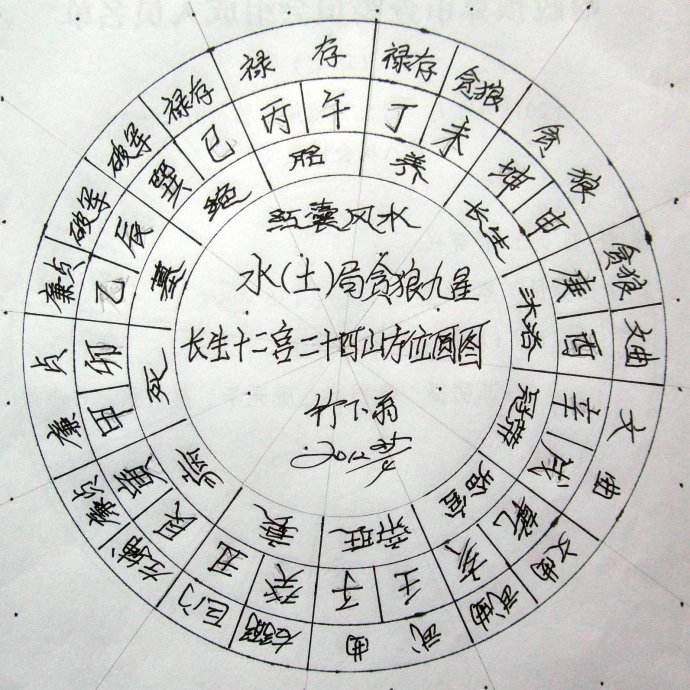 禄存
禄存
贪狼
贪狼
贪狼
文曲
文曲
文曲
武曲
武曲
右弼
巨门
左辅
廉贞
廉贞
廉贞
破军
破军
禄存
丙
午
丁
未
坤
申
庚
酉
辛
戌
乾
亥
壬
子
癸
丑
艮
寅
甲
卯
乙
辰
巽
巳
胎
养
长生
沐浴
冠带
临官
帝旺
衰
病
死
墓
绝
囊风水
水(土)局贪狼九星
长生十二宫二十四山方位圆图
2012